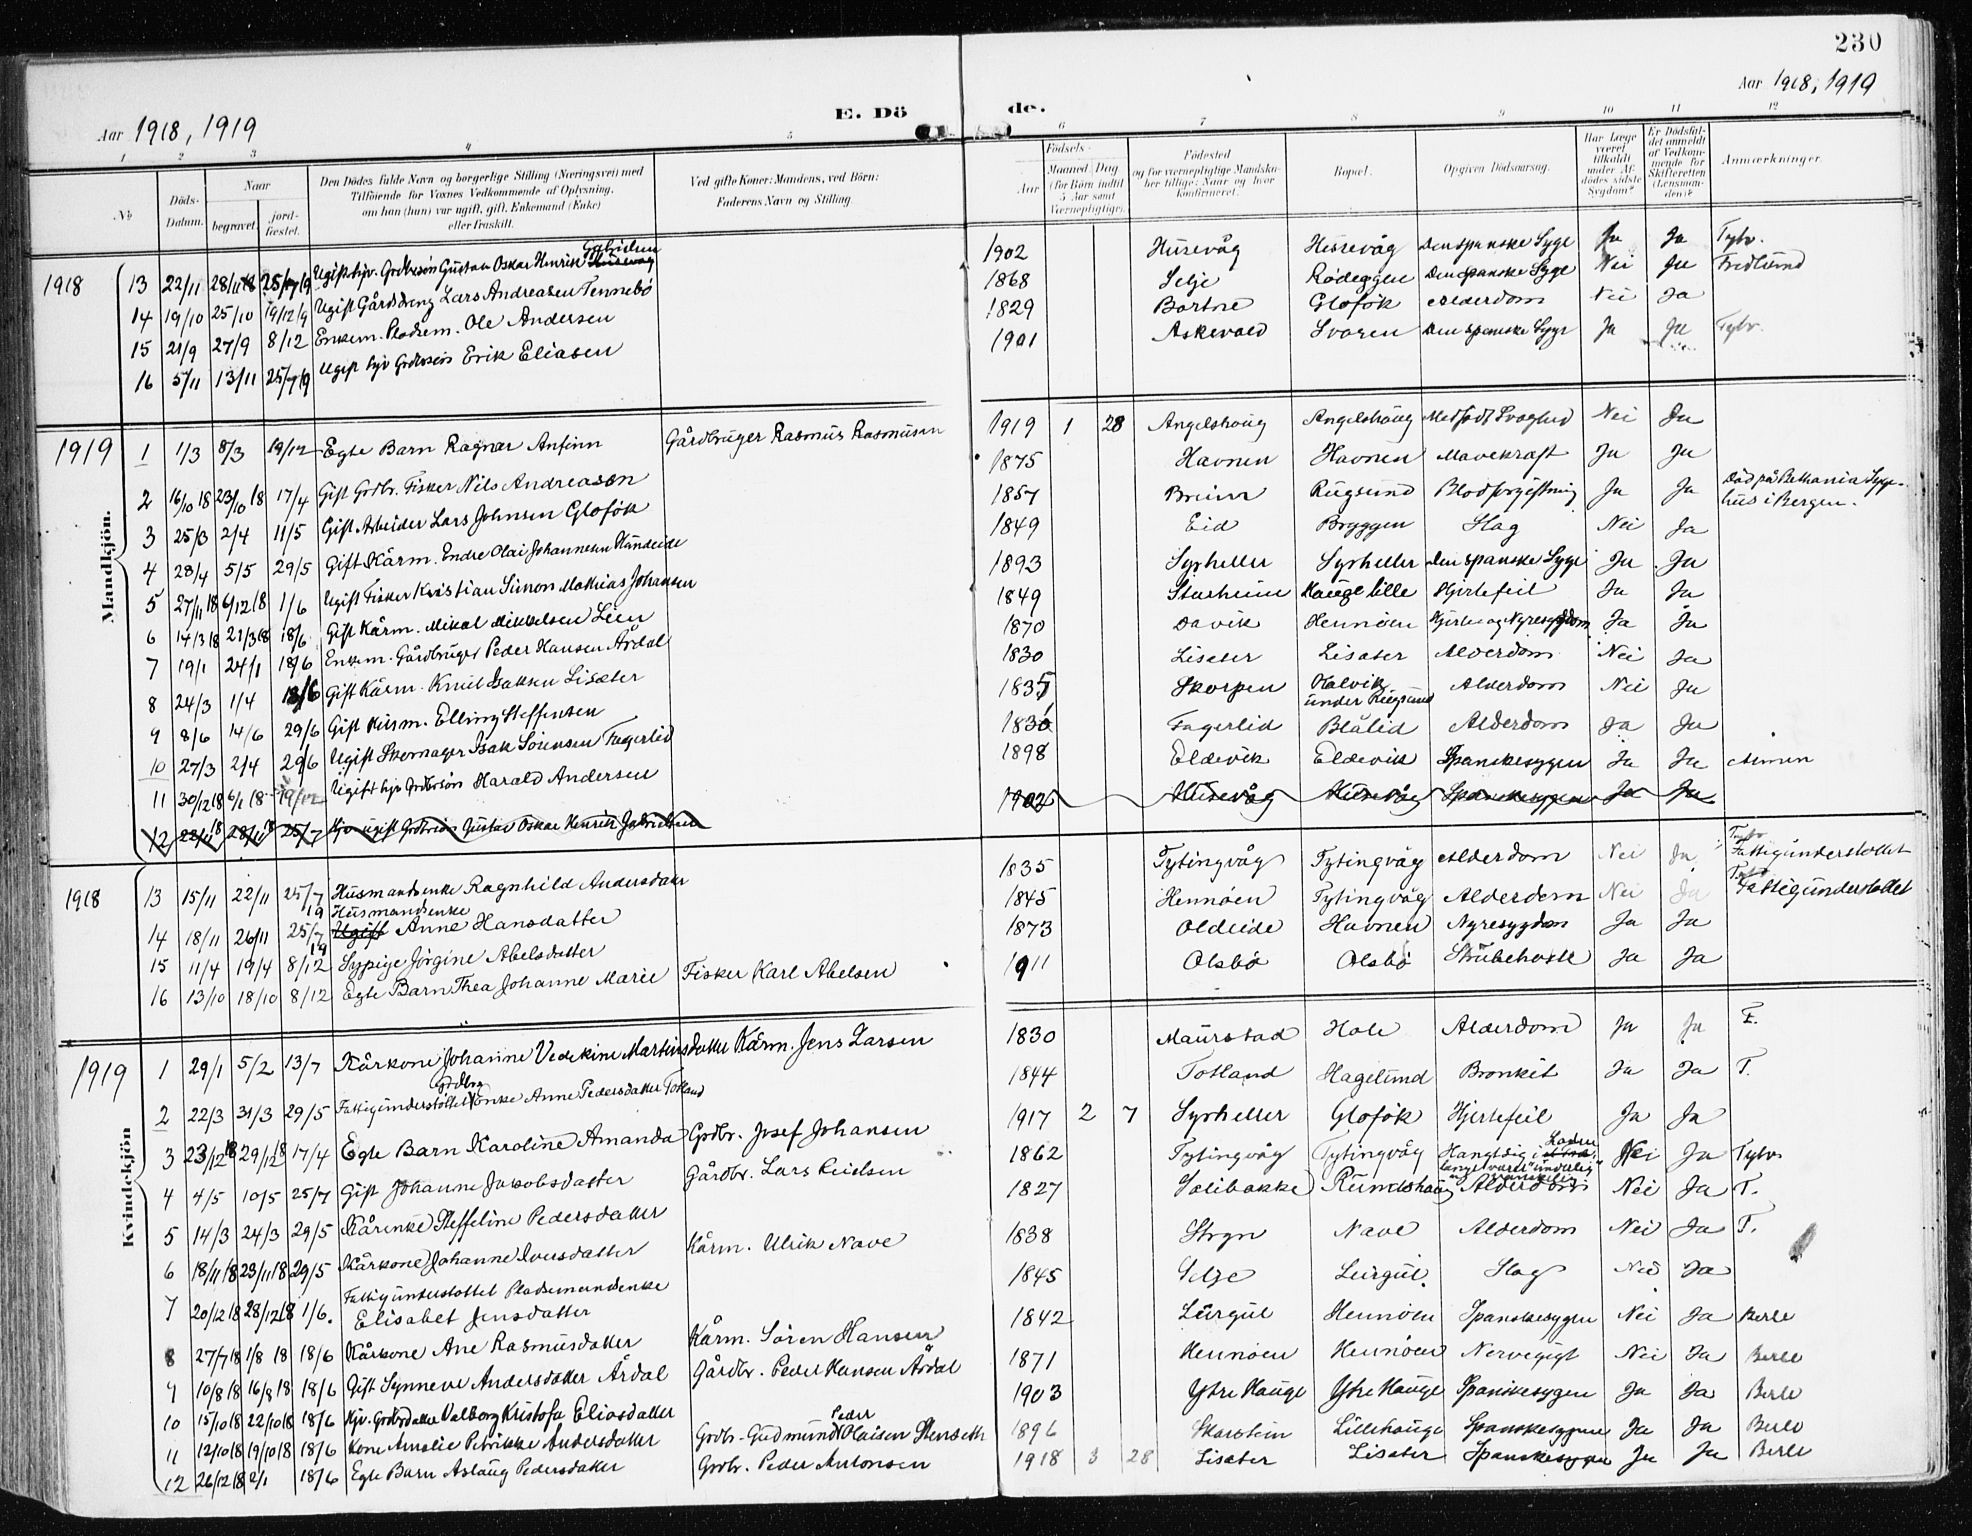 230
Aar 1918, 1919
E. Döde.
Aar 1918, 1919
1 2 3 4 5 6 7 8 9 10 11 12
No
Döds-Datum.
Naar
begravet.
jord-fæstet.
Den Dödes fulde Navn og borgerlige Stilling (Næringsvei) med
Tilföiende for Voxnes Vedkommende af Oplysning,
om han (hun) var ugift, gift, Enkemand (Enke)
eller fraskilt.
Ved gifte Koner: Mandens, ved Börn:
Faderens Navn og Stilling.
Födsels-
Aar
Maaned Dag
(for Börn indtil
5 Aar samt
Værnepligtige).
Födested
og for værnepligtige Mandska-
ber tillige: Naar og hvor
konfirmeret.
Bopæl.
Opgiven Dödsaarsag.
Har Læge
været
tilkaldt
under Af-
dödes sidste
Sygdom?
Er Dödsfal-
det anmeldt
af Vedkom-
mende for
Skifteretten
(Lensman-
den)?
Anmærkninger.
1918 13 22/11 28/11 18 25/7 19 Ugift hjv. Grdbrsøn Gustav Oskar Henrik Gabrielsen Husevåg 1902 Husevåg Husevåg Den spanske Syge Ja Ja Tytv.
14 19/10 25/10 19/12 19 Ugift Gårddreng Lars Andreasen Tennebö 1868 Selje Rödeggen Den spanske Syge Nei Ja Fredlund
15 21/9 27/9 8/12 Enkem. Pladsem. Ole Andersen 1829 Bortne Glofök Alderdom Nei Ja
16 5/11 13/11 25/7 19 Ugift hjv Grdbrsön Erik Eliasen 1901 Askevold Svoren Den spanske Syge Ja Ja Tytv.
Mandkjön.
1919 1 1/3 8/3 19/12 Egte Barn Ragnar Anfinn Gårdbruger Rasmus Rasmusen 1919 1 28 Angelshaug Angelshaug Medfödt Svaghed Nei Ja
2 16/10 18 23/10 18 17/4 Gift Grdbr. Fisker Nils Andreasen 1875 Havnen Havnen Mavekræft Ja Ja
3 25/3 2/4 11/5 Gift Arbeider Lars Johnsen Glofök 1857 Breim Rugsund Blodforgiftning Ja Ja Död på Bethania Syge-
hus i Bergen.
4 28/4 5/5 29/5 Gift Kårm. Endre Olai Johannesen Hundeide 1849 Eid Bryggen Slag Nei Ja
5 27/11 18 6/12 18 1/6 Ugift Fisker Kristian Simon Mathias Johansen 1893 Syrheller Syrheller Den spanske Syge Ja Ja
6 14/3 18 21/3 18 18/6 Gift Kårm. Mikal Mikkelsen Leen 1849 Starheim Hauge lille Hjertefeil Ja Ja
7 19/1 24/1 18/6 Enkem. Gårdbruger Peder Hansen Årdal 1870 Davik Hennöen Hjerte og Nyresygdom Ja Ja
8 24/3 1/4 18/6 Gift Kårm. Knut Isaksen Lisæter 1830 Lisæter Lisæter Alderdom Nei Ja
9 8/6 14/6 29/6 Gift Husm. Elling Steffensen 1835 Skorpen Halvik under Rugsund Alderdom Nei Ja
10 27/3 2/4 29/6 Ugift Skomager Isak Sörensen Fagerlid 1836 Fagerlid Blålid Alderdom Ja Ja
11 30/12 18 6/1 18 19/12 Ugift hjv Grdbrsön Harald Andersen 1898 Eldevik Eldevik Spanskesygen Ja Ja Almen
12 22/11 18 28/11 18 25/7 Hjv. ugift Grdbrsön Gustav Oskar Henrik Gabrielsen 1902 Husevåg Husevåg Spanskesygen Ja Ja
Kvindekjön
1918 13 15/11 22/11 25/7 19 Husmandsenke Ragnhild Andersdatter 1835 Tytingvåg Tytingvåg Alderdom Nei Ja Fattigunderstöttet
14 18/11 26/11 25/7 19 Husmandsenke Ugift Anne Hansdatter 1845 Hennöen Tytingvåg Alderdom Nei Ja Fattigunderstöttet
15 11/4 19/4 8/12 Sypige Jörgine Abelsdatter 1873 Oldeide Havnen Nyresygdom Ja Ja
16 13/10 18/10 8/12 Egte Barn Thea Johanne Marie Fisker Karl Abelsen 1911 Olsbö Olsbö Strubehoste Ja Ja
1919 1 29/1 5/2 13/7 Kårkone Johanne Vedekine Martinsdatter Kårm. Jens Larsen 1830 Maurstad Hole Alderdom Ja Ja T.
2 22/3 31/3 29/5 Fattigunderstöttet Grdbrg Enke Anne Pedersdatter Totland 1844 Totland Hagelund Bronkit Ja Ja T.
3 23/12 18 29/12 18 17/4 Egte Barn Karoline Amanda Grdbr. Josef Johansen 1917 2 7 Syrheller Glofök Hjertefeil Ja Ja
4 4/5 10/5 25/7 Gift Johanne Jakobsdatter Gårdbr. Lars Eielsen 1862 Tytingvåg Tytingvåg Hangt sig i Laden længe været "underlig" Nei Ja Tytv.
5 14/3 24/3 29/5 Kårenke Steffeline Pedersdatter 1827 Solibakke Rundshaug Alderdom Nei Ja T.
6 18/11 18 23/11 18 29/5 Kårkone Johanne Iversdatter Kårm. Ulrik Nave 1838 Stryn Nave Alderdom Nei Ja T.
7 20/12 18 28/12 18 1/6. Fattigunderstöttet Pladsemandsenke Elisabet Jensdatter 1845 Selje Leirgul. Slag Nei Ja
8 27/7 18 1/8 18 18/6 Kårkone Ane Rasmusdatter Kårm. Sören Hansen 1842 Leirgul Hennöen Spanskesygen Nei Ja Berle
9 10/8 18 16/8 18 18/6 Gift Synneve Andersdatter Årdal Gårdbr. Peder Hansen Årdal 1871 Hennöen Hennöen Nervegigt Nei Ja Berle
10 15/10 18 22/10 18 18/6 Hjv. Grdbrdatter Valborg Kristofa Eliasdatter 1903 Ytre Hauge Ytre Hauge Spanskesygen Ja Ja Berle
11 12/10 18 19/10 18 18/6 Kone Amalie Petrikke Andersdatter Grdbr. Gudmund Peder Olaisen Stenseth 1896 Skarstein Lillehauge Spanskesygen Ja Ja Berle
12 26/12 18 2/1 18/6 Egte Barn Aslaug Pedersdatter Grdbr. Peder Antonsen 1918 3 28 Lisæter Lisæter Spanskesygen Ja Ja Berle